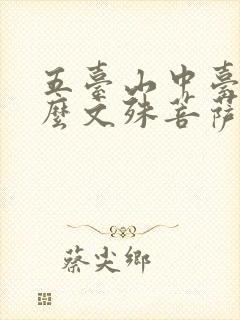 五臺山中臺
麼文殊菩薩
蔡尖鄉